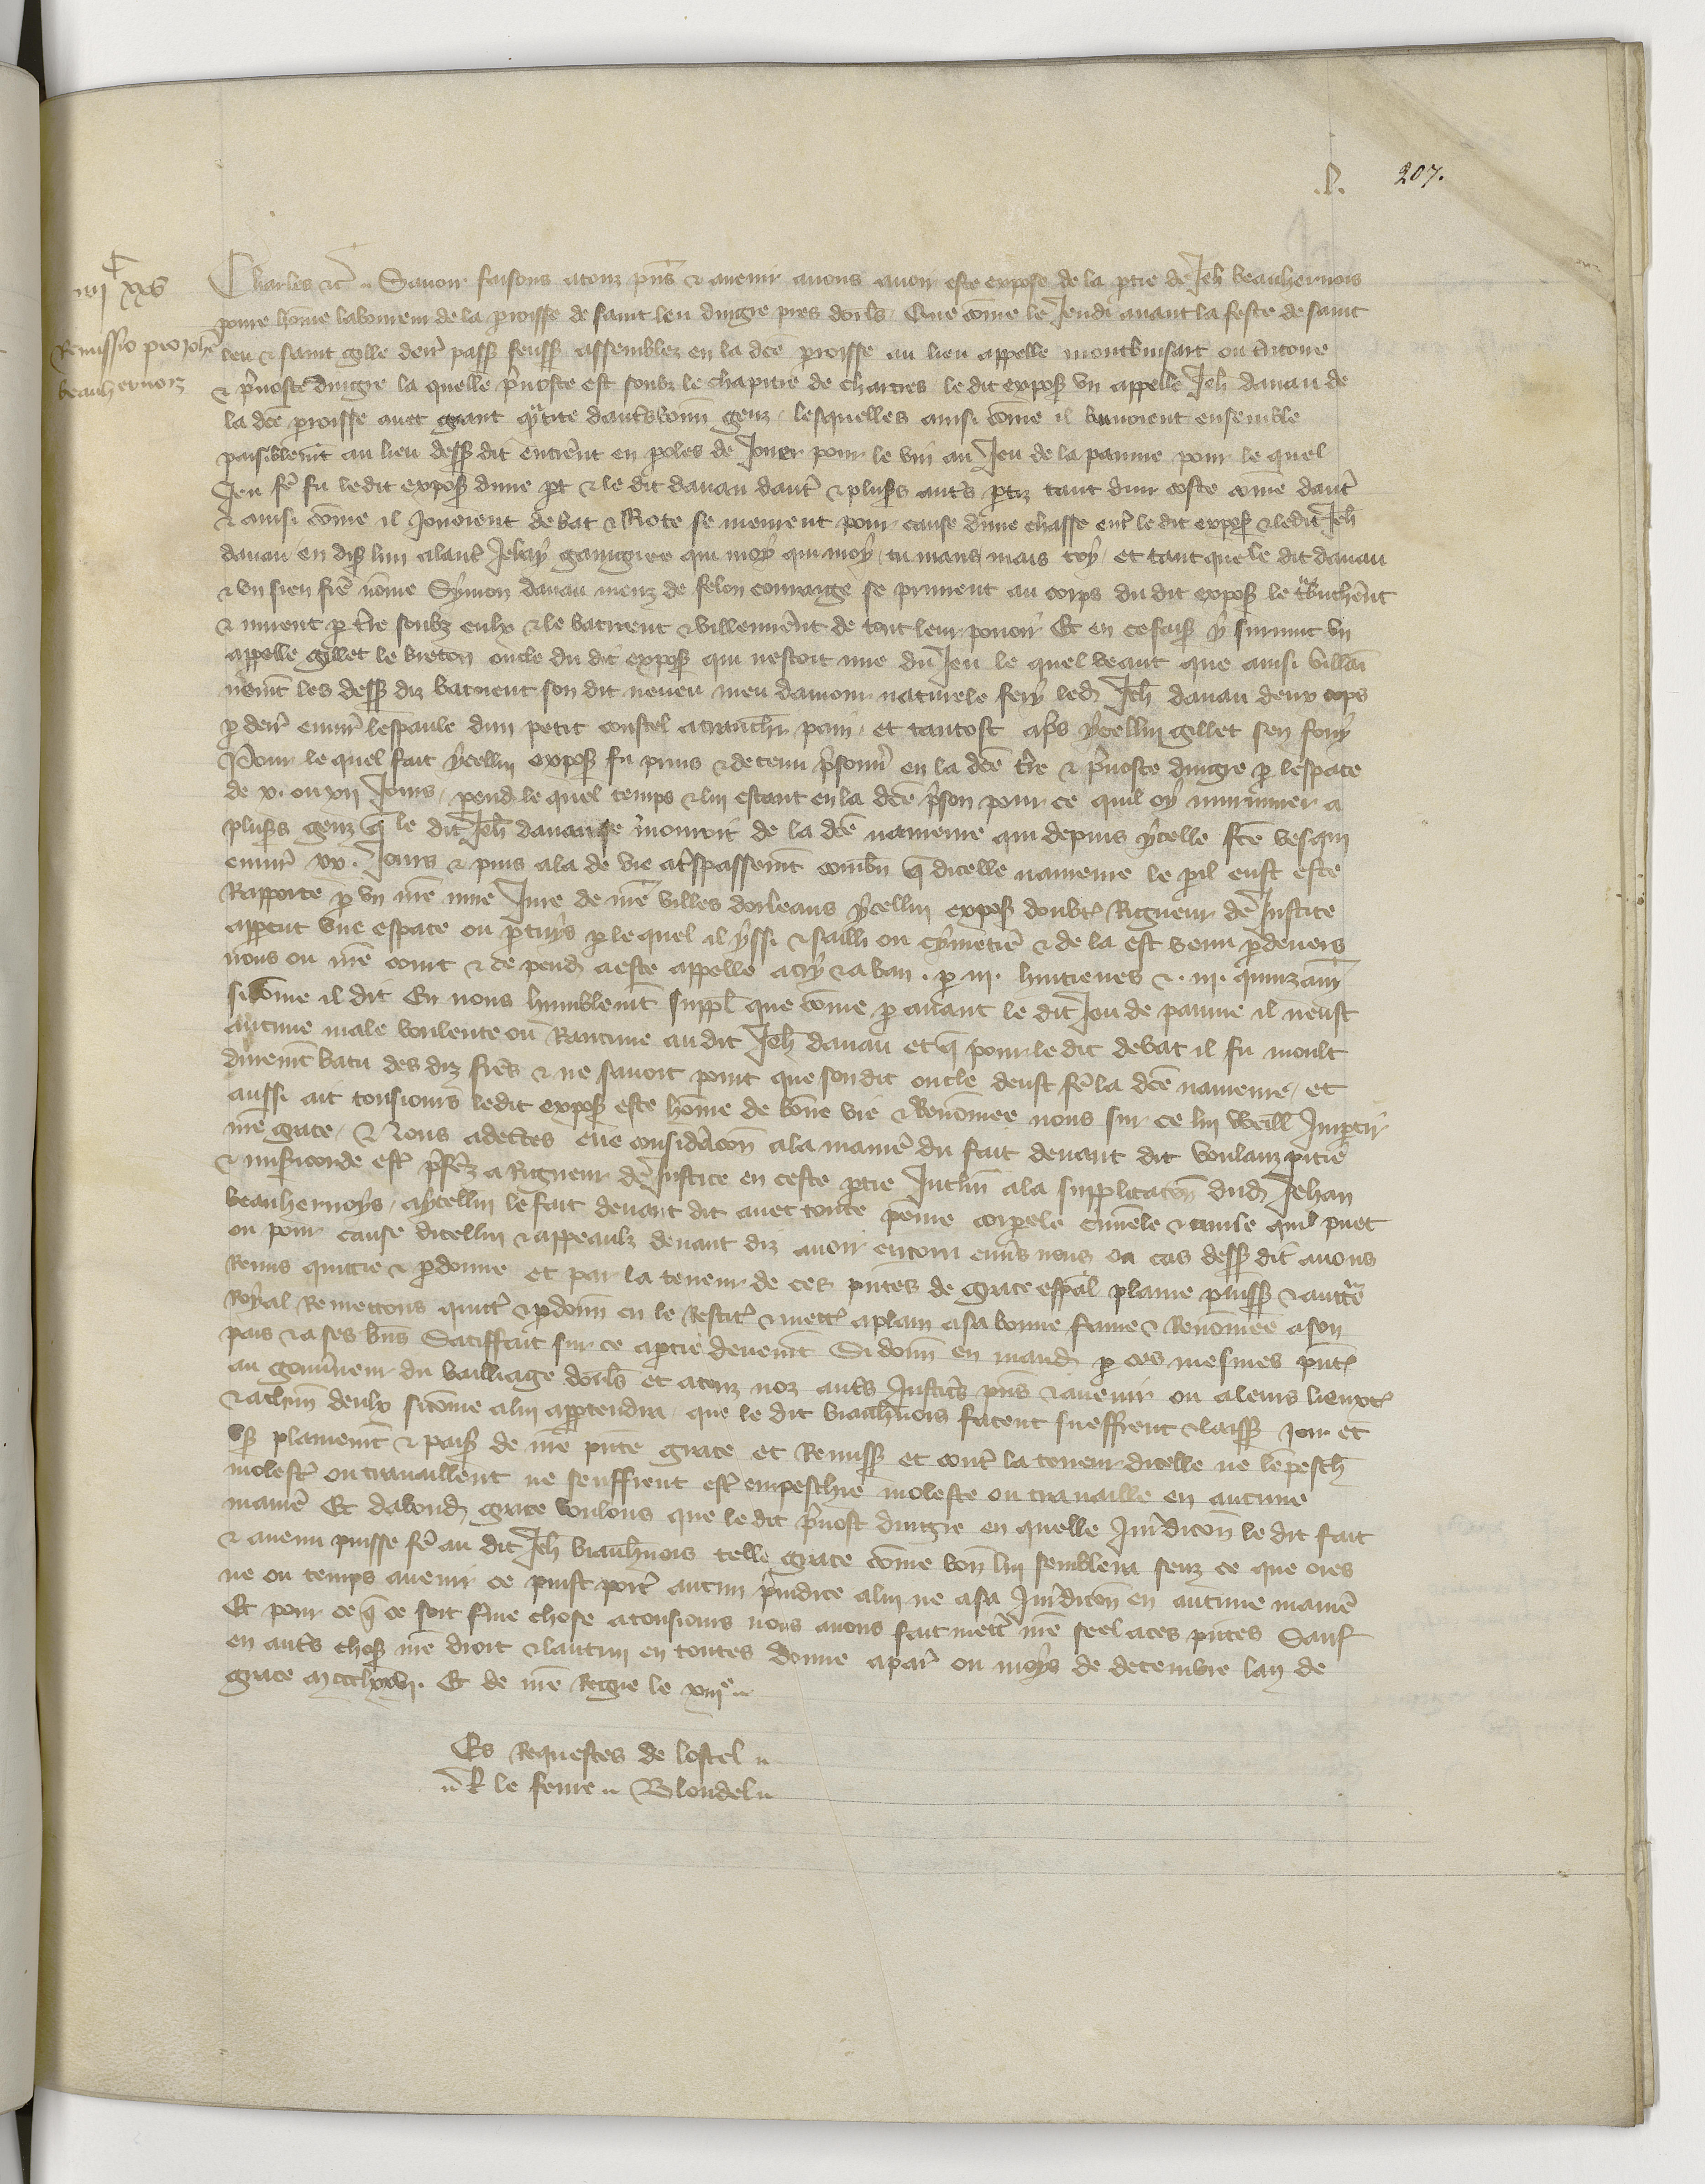 .l. 207.
iiii xx v
Remissio pro Johe
beauhernoiz
Charles etc. Savoir faisons a touz pns & avenir a nous avoir este expose de la ptie de Jeh beauhernois
povre home laboureur de la proisse de saint leu dingre pres dorls Que come le Jeudi avant la feste de saint
leu & saint gille derr passe feussent assemblez en la dce proisse au lieu appelle ou terrouer
& pvoste dingre la quelle pvoste est soubz le chapitre de chartres le dit expos un appelle Jeh davau de
la dce proisse avec grant qtite dautrs bonn genz lesquelles ainsi come il buvoient ensemble
paisiblemt au lieu dess dit entrent en poles de Jouer pour le vin au Jeu de la paume pour le quel
Jeu fe fu ledit expos dune pt & le dit davau daut & plusrs auts ptiz tant dun coste come daut
& ainsi come il Jouoient debat & Riote se meurent pour cause dune chasse ent le dit expos & ledit Jeh
davau en dis lun a laut Je lay gaingniee qui moy qui moy tu mans mais toy et tant que le dit davau
& un sien fre nome Symon davau meuz de felon courage se prinrent au corps du dit expos le tbucherent
& mirent p tre soubz eulx & le batirent & villenerent de tout leur pouoir Et en ce fais y survint un
appelle gillet le breton oncle du dit expos qui nestoit mie du Jeu le quel veant que ainsi villai
nemt les dess diz batoient son dit neveu meu damour naturele fery led Jeh davau deux cops
p derr envir lespaule dun petit coustel a trencher pain et tantost aps ycellui gillet sen fouy
Pour le quel fait ycellui expos fu prins & detenu psonn en la dce tre & pvoste dingre p lespace
de x. ou xii Jours pend le quel temps & lui estant en la dce pson pour ce quil oy murmurer a
plusrs genz q le dit Jeh davau se mouroit de la dce navreure qui depuis ycelle fce vesqui
envir xv. Jours & puis ala de vie a trspassemt combn q dicelle navreure le pil eust este
Rapporte p un mire Jure de villes dorleans ycellui expos doubt Rigueur de Justice
apperceut une espace ou ptuys p le quel il yssi & sailli ou cymetire & de la est venu p devers
nous ou nre court & de pend a este appelle a cry & a ban . p iii. huitienes & . iii. quinzain
si come il dit En nous humblemt suppl que come p avant le dit Jeu de paume il neust
aucune male voulente ou Rancune au dit Jeh davau et q pour le dit debat il fu moult
duremt batu des diz fres & ne savoit point que son dit oncle deust fe la dce navreure et
aussi ait tousiours ledit expos este home de bone vie & Renomee nous sur ce lui weill Imptir
nre grace & Nous adectes eue considacon a la manie du fait devant dit voulanz pitie
& misicorde est pfez a Rigueur de Justice en ceste ptie Inclin a la supplicacon dud Jehan
beauhernoys a ycellui le fait devant dit avec toute peine corpele cimele & civile quil puet
ou pour cause dicellui & appeaulz devant diz avoir encouru envs nous ou cas dess dit avons
Remis quittie & pdonne et par la teneur de ces pntes de grace espal plaine puiss & auctte
Royal Remettons quitt & pdonn en le Restit & mett a plain a sa bonne fame & Renomee a son
pais & a ses bns Satiffait sur ce a ptie devemt Si donn en mand p ces mesmes pnt
au gouvneur du bailliage dorls et a touz noz auts Justics pns & avenir ou a leurs lieuxt
& a chun deulx si come a lui apptendra que le dit beauhernois facent sueffrent & laiss Jouir et
us plainemt & pais de nre pnte grace et Remiss et cont la teneur dicelle ne lempesch
molest ou travaillent ne seuffrent est empeschie moleste ou travaille en aucune
manie Et dabond grace voulons que le dit pvost dingre en quelle Juridicon le dit fait
& avenu puisse fe au dit Jeh beauhernois telle grace come bon lui semblera senz ce que ores
ne ou temps avenir ce puist port aucun piudice a lui ne a sa Juridicon en aucune manie
Et pour ce q ce soit fme chose a tousiours nous avons fait mett nre seel a ces pntes Sauf
en auts chos nre droit & lautrui en toutes donne a par ou moys de decembre lan de
grace m ccc lx Et de nre Regne le xiiie
Es Requestes de lostel
le fevre Blondel